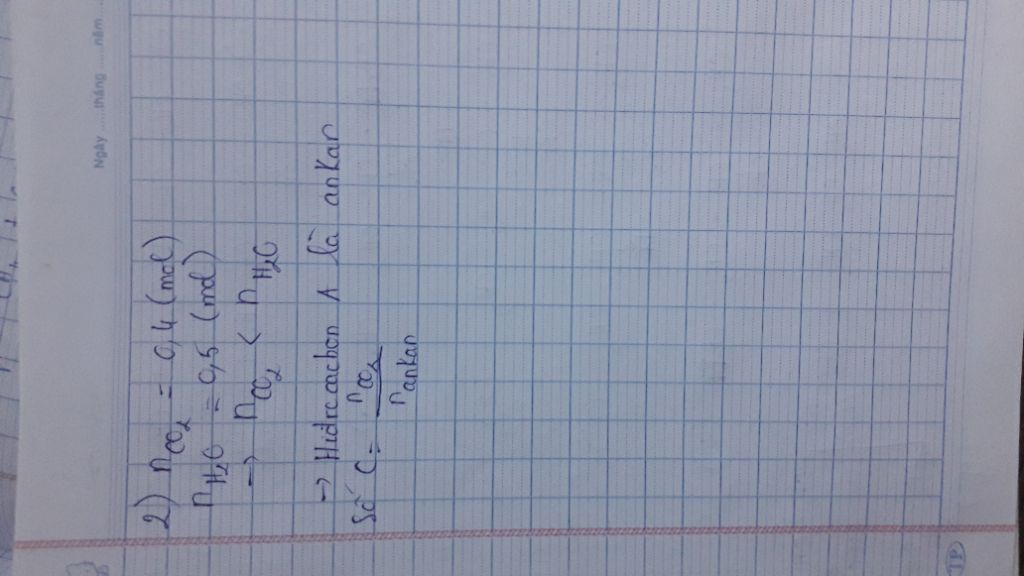 Ngày ......tháng ......năm ....
2) nCO2 = 0,4 (mol)
nH2O = 0,5 (mol)
→ nCO2 < nH2O
→ Hidrocacbon A là ankan
Số C = nCO2 / nankan
TP